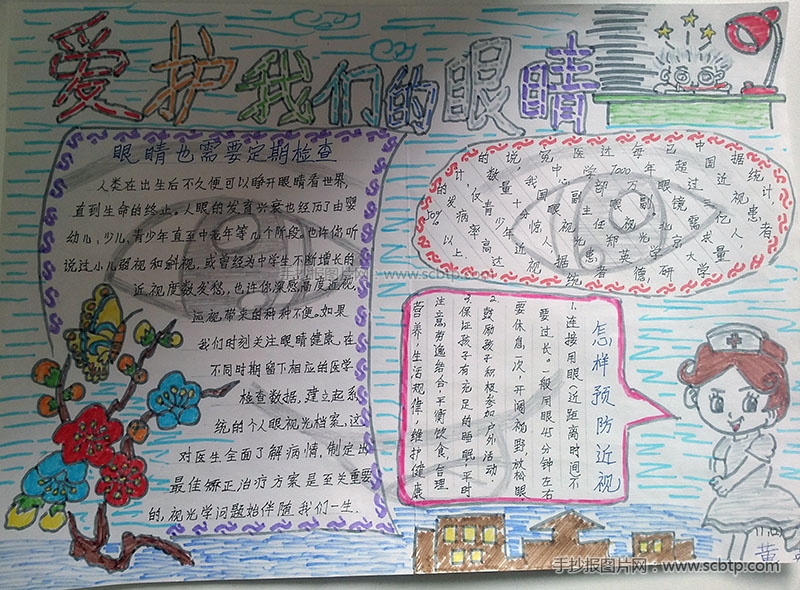 爱护我们的眼睛
眼睛也需要定期检查
人类在出生后不久便可以睁开眼睛看世界,
直到生命的终止。人眼的发育兴衰也经历了由婴
幼儿、少儿、青少年直至中老年等几个阶段,也许你听
说过小儿弱视和斜视,或曾经为中学生不断增长的
近视度数发愁,也许你深感高度近视,
远视带来的种种不便。如果
我们时刻关注眼睛健康,在
不同时期留下相应的医学
检查数据,建立起系
统的个人眼视光档案,这
对医生全面了解病情,制定出
最佳矫正治疗方案是至关重要
的,视光学问题始终伴随我们一生.
据统计,
中国近视患者
已超过三亿人,
计,青少年近视
发病率高达
50%以上
怎样预防近视
1.连接用眼(近距离时间不
要过长。一般用眼45分钟左右
要休息一次,开阔视野,放松眼
2.鼓励孩子积极参加户外活动
3.保证孩子有充足的睡眠,平时
注意劳逸结合,平衡饮食,合理
营养,生活规律,维护健康
黄
手抄报图片网 www.scbtp.com
手抄报图片网:www.scbtp.com